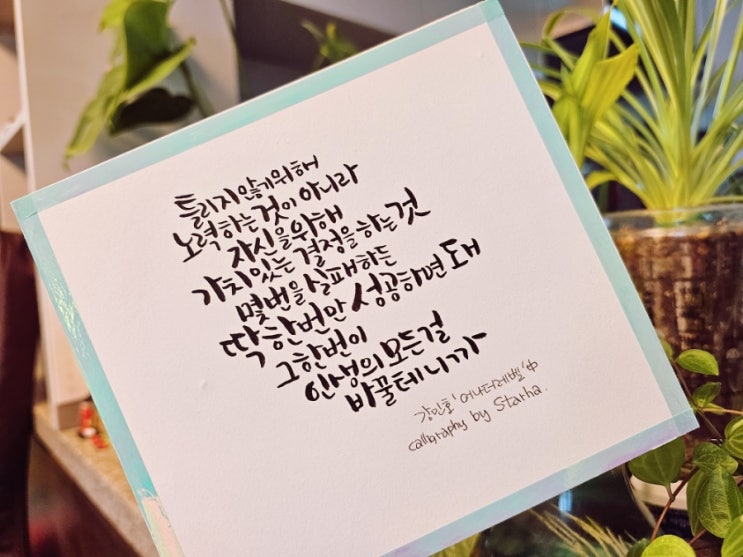 틀리지 않기위해
노력하는 것이 아니라
자신을위해
가치있는 결정을 하는것
몇번을 실패하든
딱 한번만 성공하면 돼
그한번이
인생의 모든걸
바꿀테니까
강민호 '어나더레벨' 中
calligraphy by Starha.